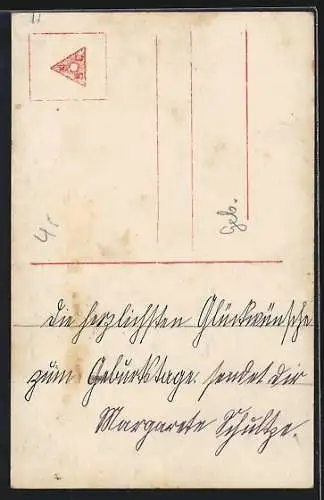 Die herzlichsten Glückwünsche
zum Geburtstage sendet dir
Margarete Schultze.
Geb.